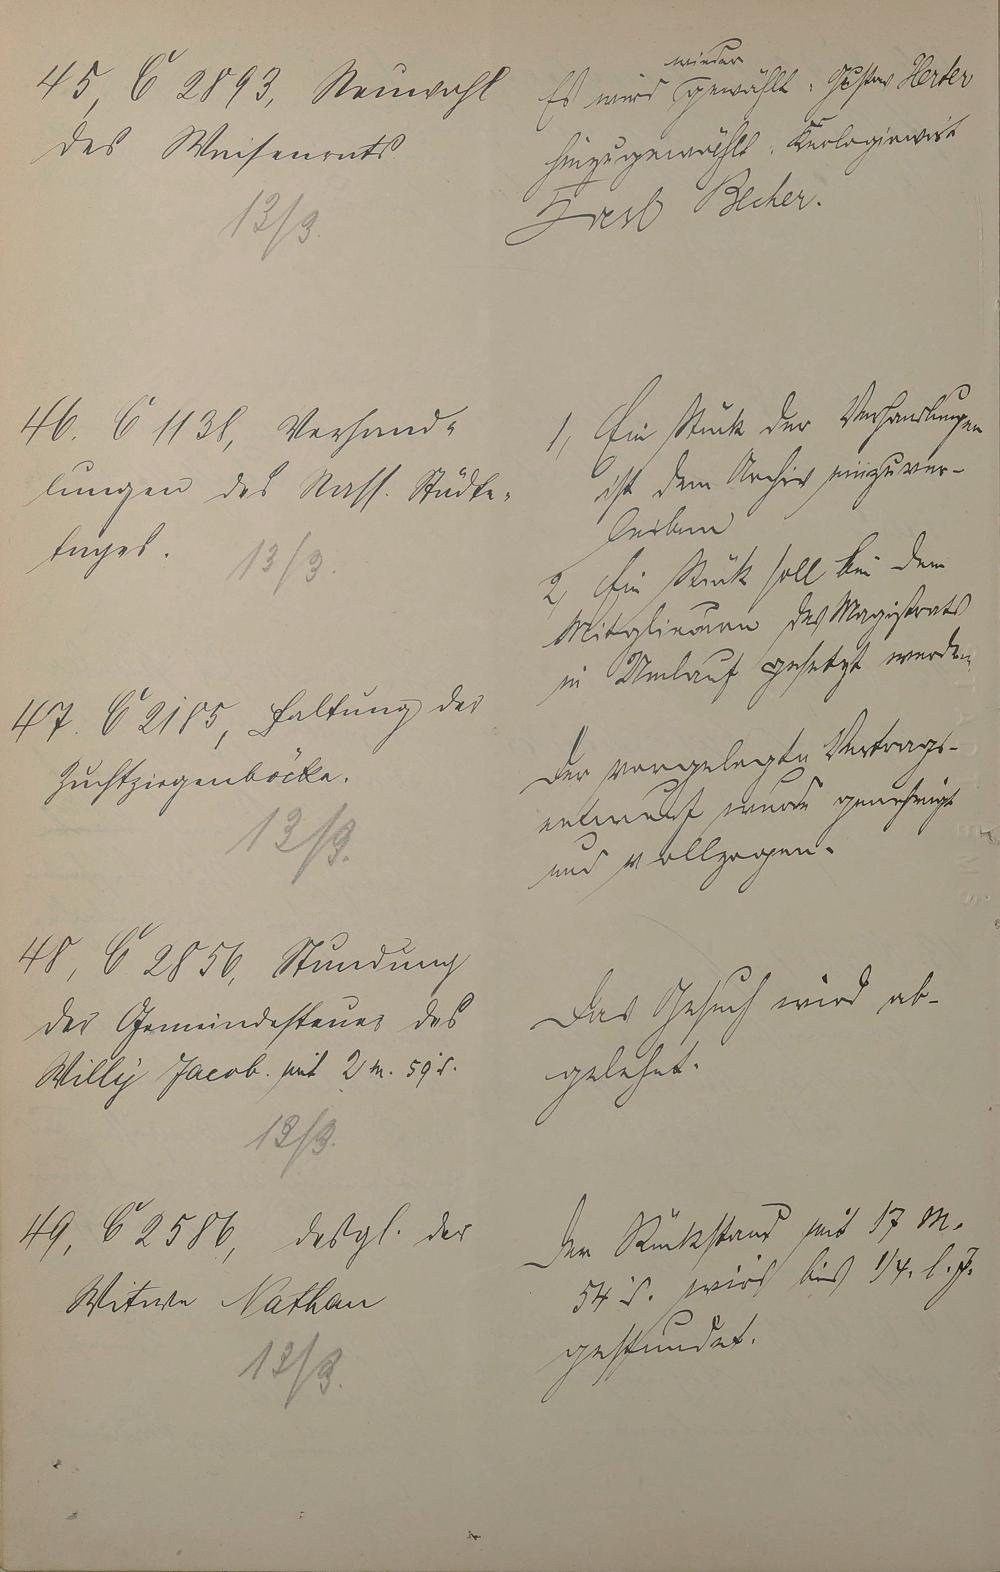 45, C 2893, Neuwahl
des Waisenrats.
13/3.
wieder
Es wird gewählt: Gustav Herber
hinzugewählt:
Becher.
46. C 1138, Verhand-
lungen des Nass. Städte-
tages.
13/3.
1, Ein Stück der Verhandlungen
ist dem Archiv einzuver-
leiben
2, Ein Stück soll bei dem
Mitgliedern des Magistrats
in Umlauf gesetzt werden
47. C 2185, Haltung der
Zuchtziegenböcke.
13/3.
Der vorgelegte Vertrags-
entwurf wurde genehmigt
und vollzogen.
48, C 2856, Stundung
der Gemeindesteuer des
Willy Jacob. mit 2 M. 59 d.
13/3.
Das Gesuch wird ab-
gelehnt.
49, C 2586, desgl. der
Witwe Nathan
13/3.
Der Rückstand mit 17 M.
54 d. wird bis 1/4. l. J.
gestundet.